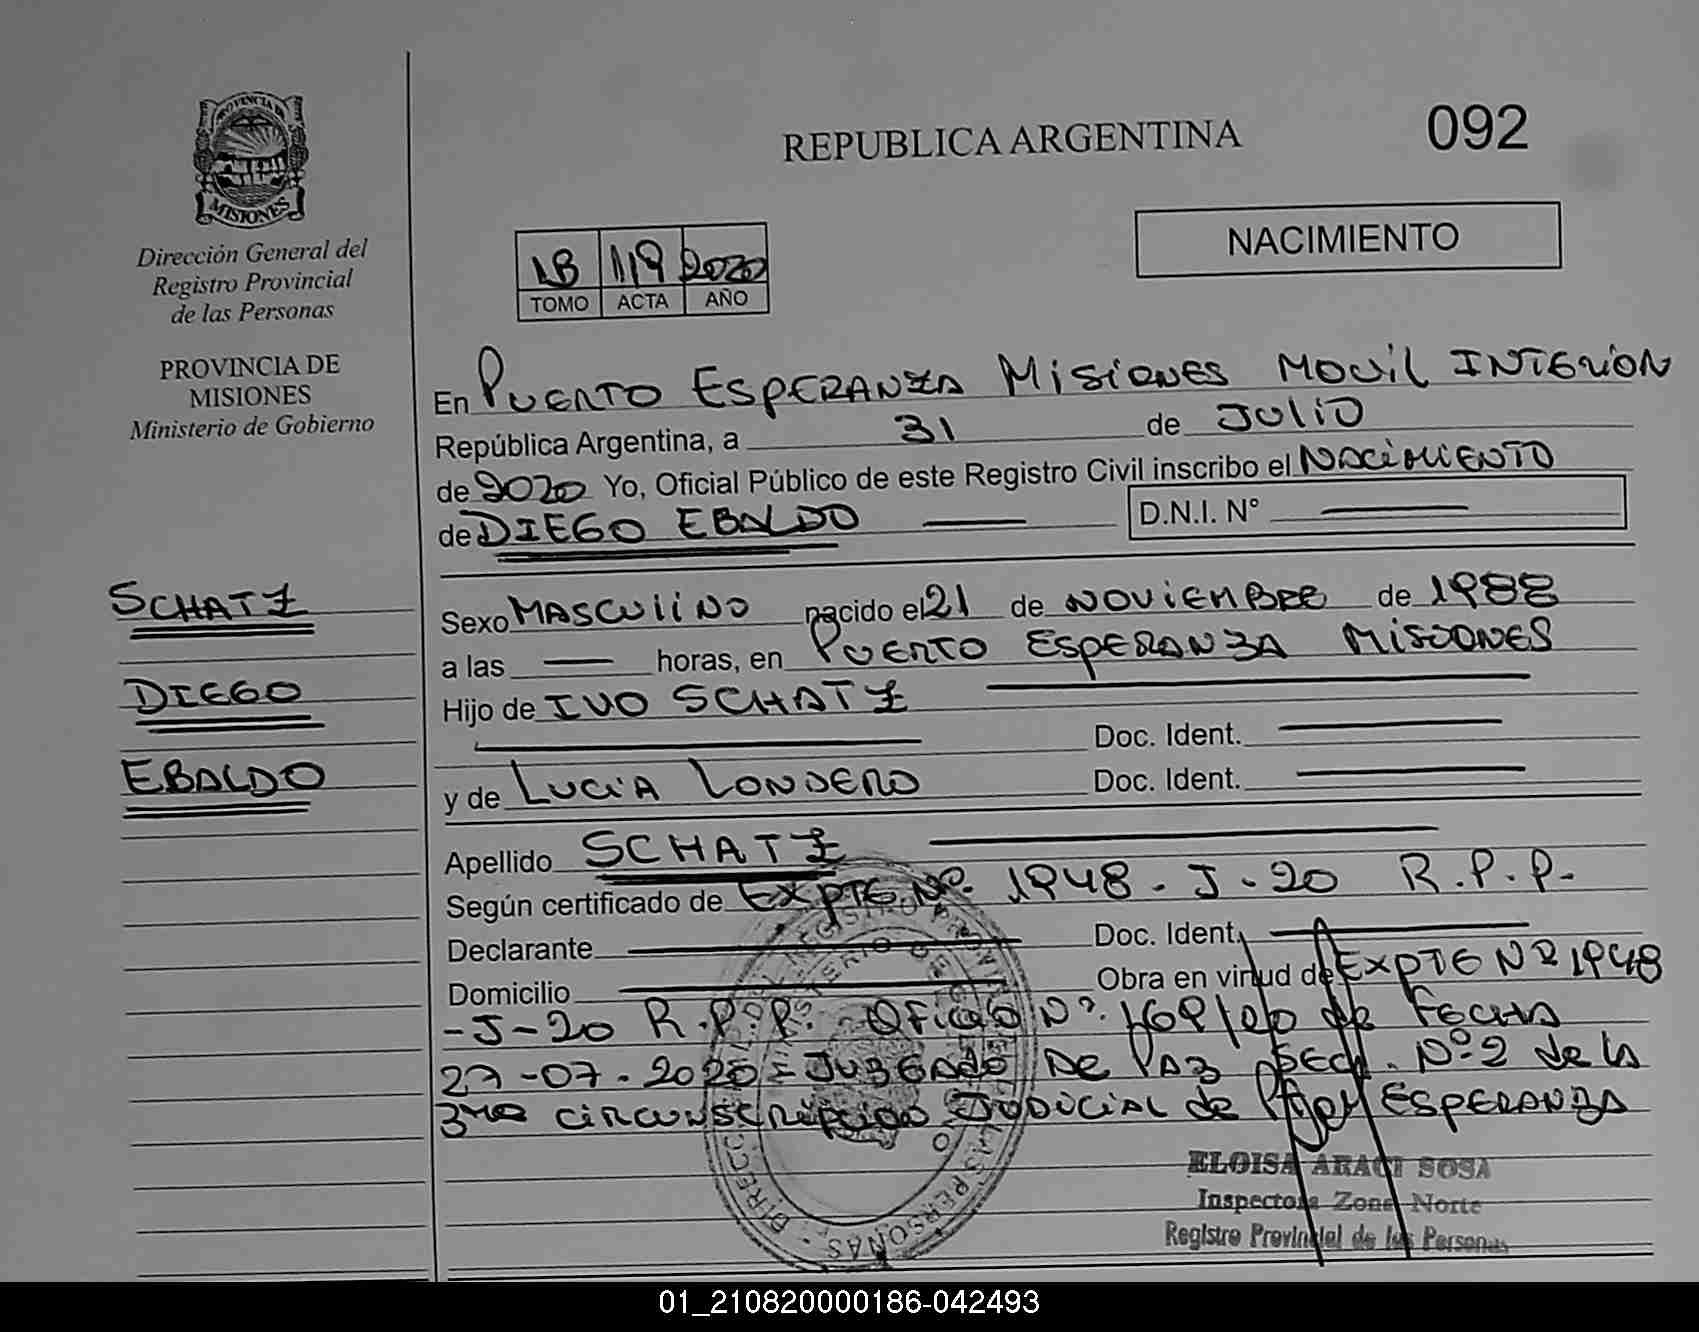 PROVINCIA DE
MISIONES
Dirección General del
Registro Provincial
de las Personas
PROVINCIA DE
MISIONES
Ministerio de Gobierno
SCHATZ
DIEGO
EBALDO
REPUBLICA ARGENTINA
092
NACIMIENTO
1B 119 2020
TOMO ACTA AÑO
En PUERTO ESPERANZA MISIONES MOVIL INTERIOR
República Argentina, a 31 de JULIO
de 2020 Yo, Oficial Público de este Registro Civil inscribo el NACIMIENTO
de DIEGO EBALDO D.N.I. N°
Sexo MASCULINO nacido el 21 de NOVIEMBRE de 1988
a las horas, en PUERTO ESPERANZA MISIONES
Hijo de IVO SCHATZ
Doc. Ident.
y de LUCIA LONDERO Doc. Ident.
Apellido SCHATZ
Según certificado de EXPTE Nº. 1948 - J - 20 R.P.P.
Declarante Doc. Ident.
Domicilio Obra en virtud de EXPTE Nº 1948
-J-20 R.P.P. OFICIO Nº. de FECHA
27-07-2020 - JUZGADO DE PAZ SEC. Nº 2 de la
3ra CIRCUNSCRIPCION JUDICIAL de ESPERANZA
ELOISA ARACI SOSA
Inspectora Zona Norte
Registro Provincial de las Personas
01_210820000186-042493